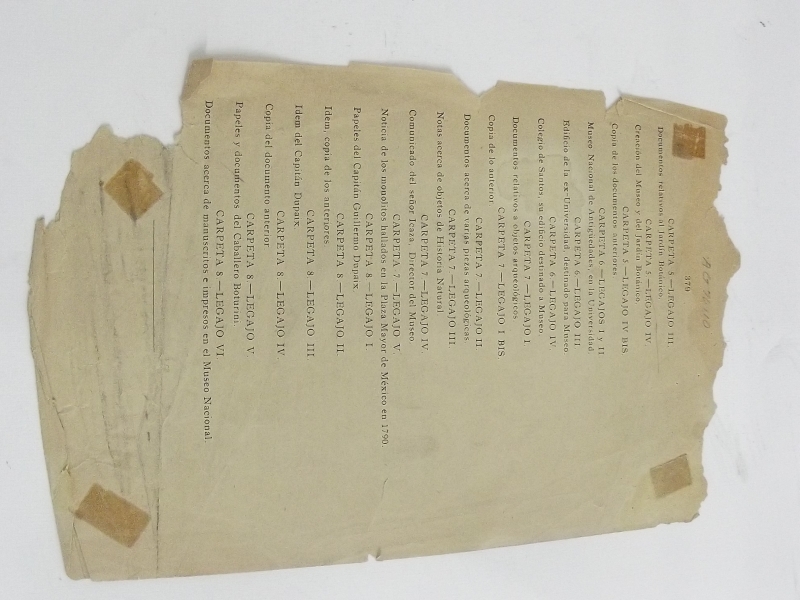 379
CARPETA 5 —LEGAJO III.
Documentos relativos al Jardín Botánico.
CARPETA 5 —LEGAJO IV
Creación del Museo y del Jardín Botánico
CARPETA 5 —LEGAJO IV BIS
Copia de los documentos anteriores
CARPETA 6 —LEGAJOS I y II
Museo Nacional de Antigüedades, en la Universidad
CARPETA 6 —LEGAJO III
Edificio de la ex-Universidad, destinado para Museo
CARPETA 6 —LEGAJO IV
Colegio de Santos; su edificio destinado a Museo
CARPETA 7 —LEGAJO I
Documentos relativos a objetos arqueológicos
CARPETA 7 —LEGAJO I BIS
Copia de lo anterior
CARPETA 7 —LEGAJO II
Documentos acerca de varias piezas arqueológicas
CARPETA 7 —LEGAJO III
Notas acerca de objetos de Historia Natural
CARPETA 7 —LEGAJO IV.
Comunicado del señor Icaza, Director del Museo
CARPETA 7 —LEGAJO V
Noticia de los monolitos hallados en la Plaza Mayor de México en 1790.
CARPETA 8 —LEGAJO I
Papeles del Capitán Guillermo Dupaix
CARPETA 8 —LEGAJO II
Idem, copia de los anteriores
CARPETA 8 —LEGAJO III
Idem del Capitán Dupaix
CARPETA 8 —LEGAJO IV
Copia del documento anterior
CARPETA 8 —LEGAJO V
Papeles y documentos del Caballero Boturini.
CARPETA 8 —LEGAJO VI
Documentos acerca de manuscritos e impresos en el Museo Nacional.